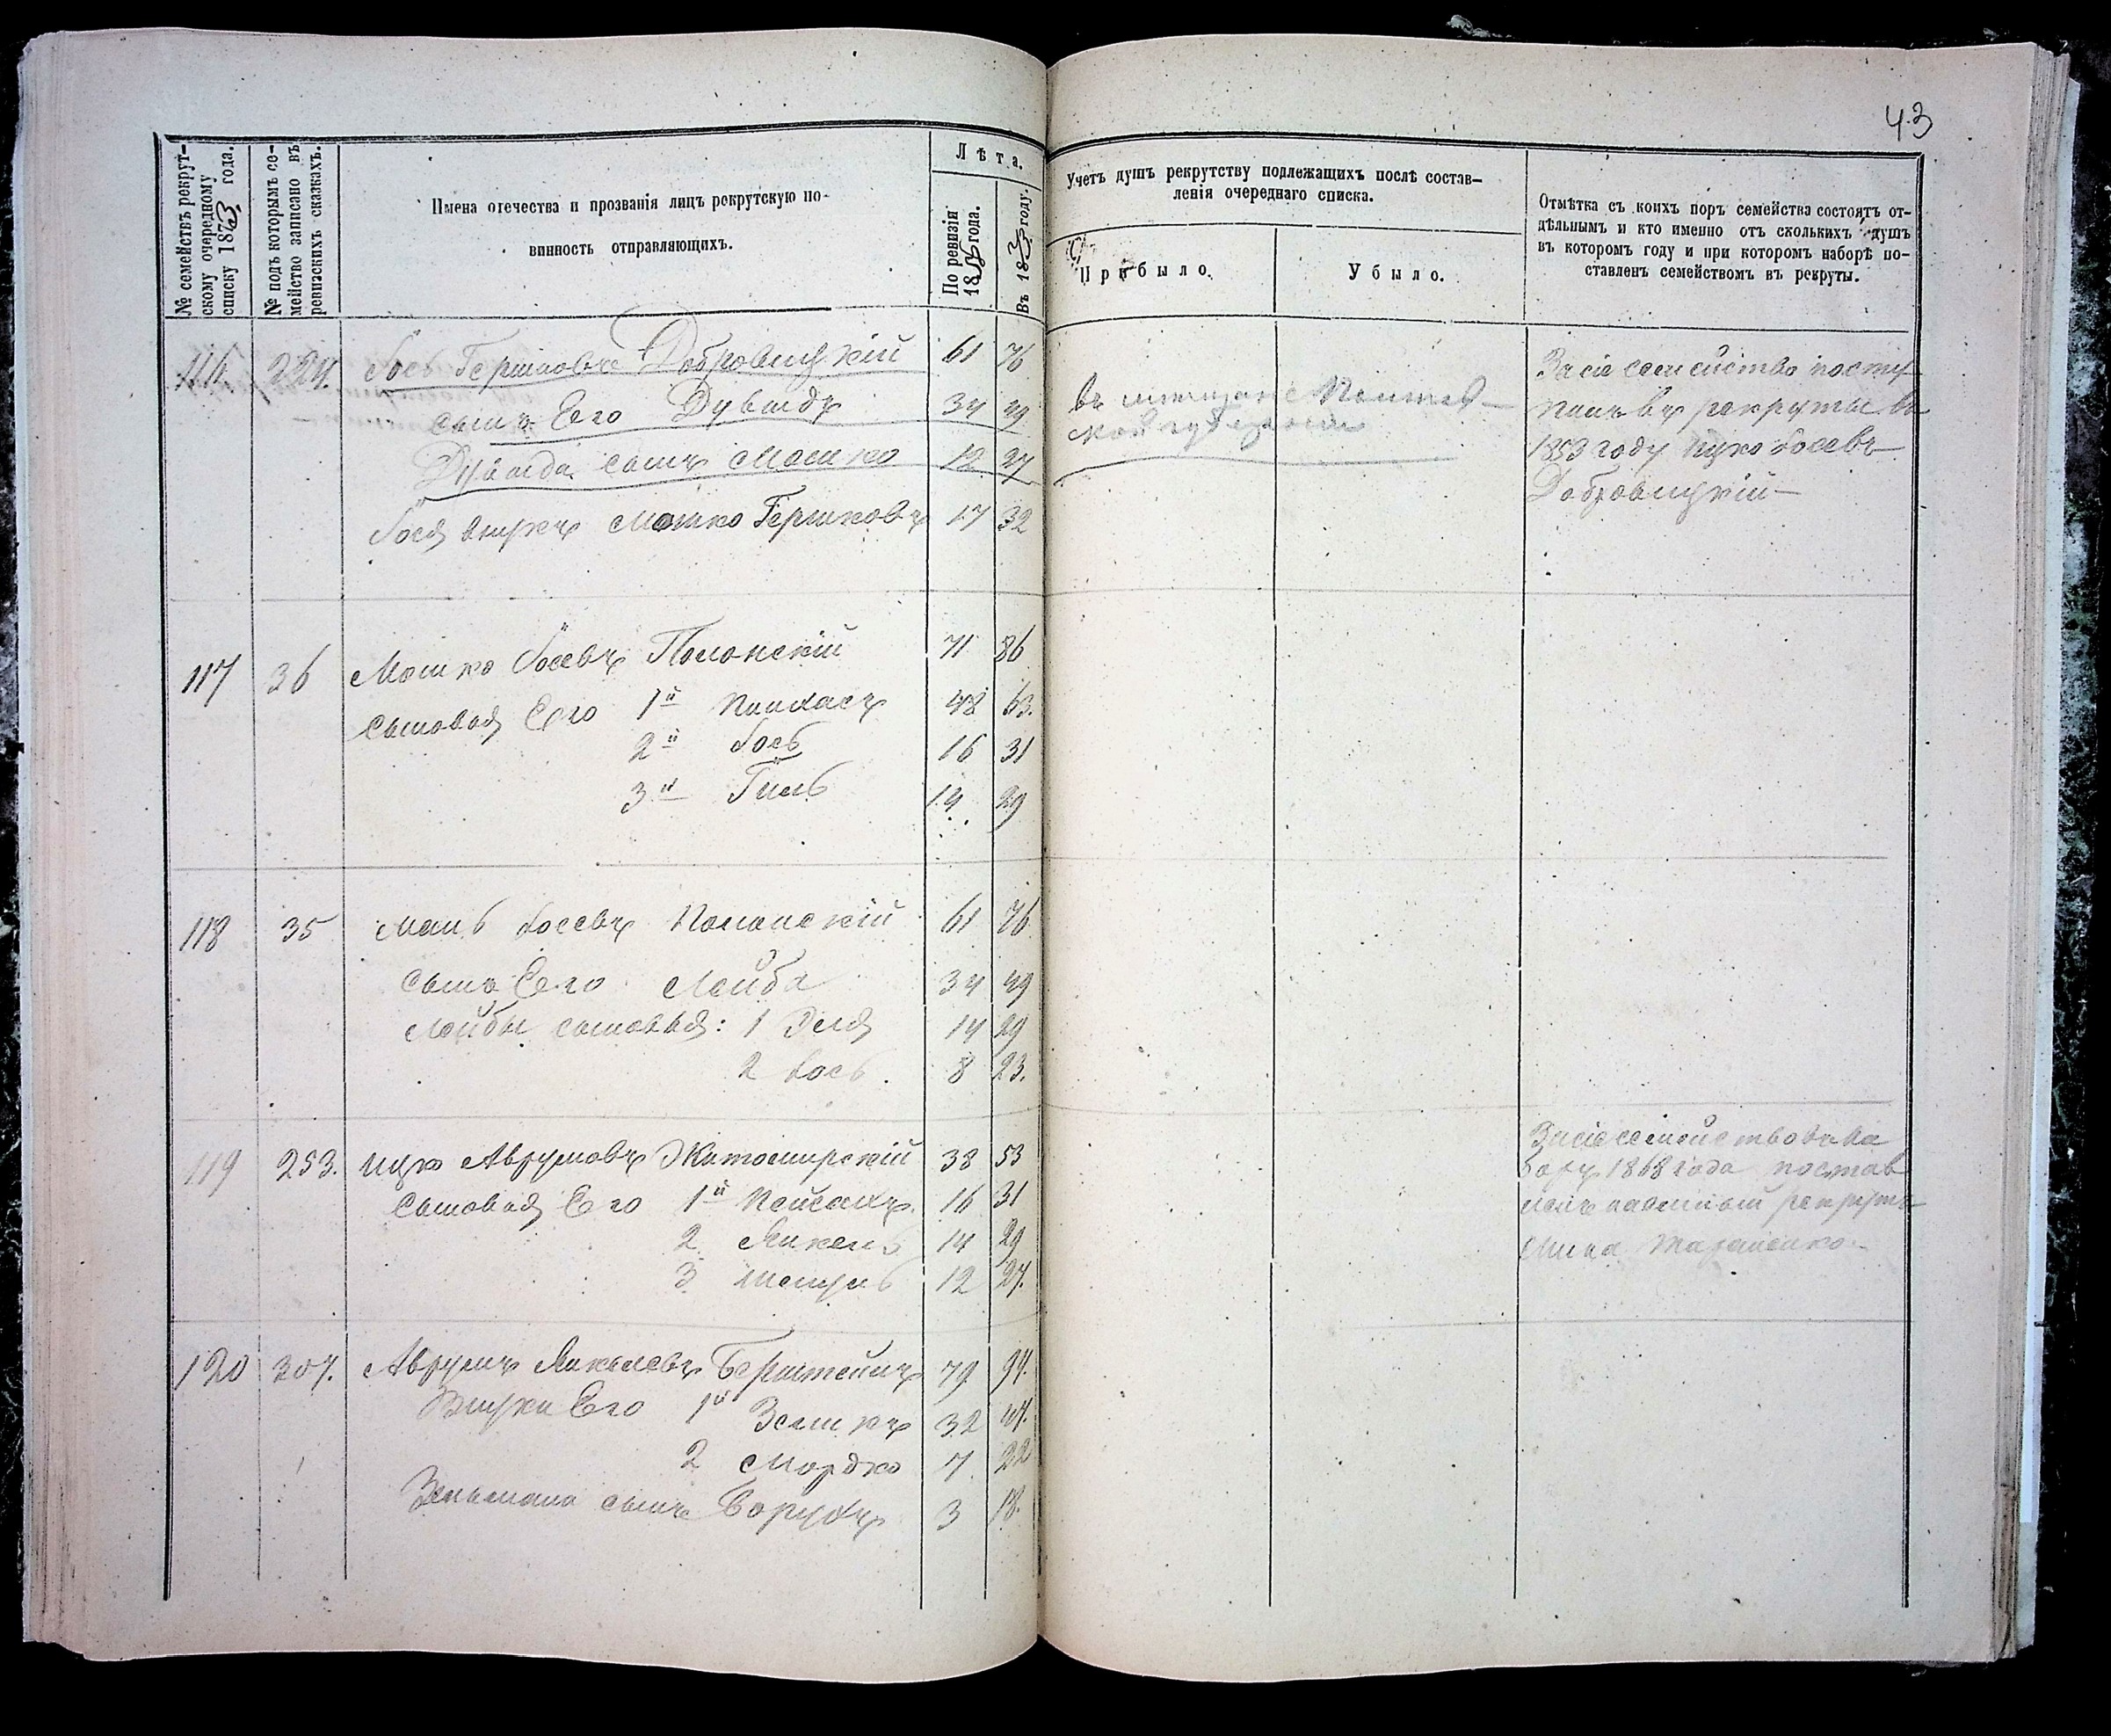 43
№ семействъ рекрут-
скому очередному
списку 1873 года.
№ подъ которымъ се-
мейство записано въ
ревизскихъ сказкахъ.
Имена отечества и прозванія лицъ рекрутскую по-
винность отправляющихъ.
Лѣта.
По ревизіи
1858 года.
Въ 1873 году.
Учетъ душъ рекрутству подлежащихъ послѣ состав-
ленія очереднаго списка.
Прибыло.
Убыло.
Отмѣтка съ коихъ поръ семейства состоятъ от-
дѣльнымъ и кто именно отъ сколькихъ душъ
въ котором году и при которомъ наборѣ по-
ставленъ семействомъ въ рекруты.
116 224. Іось Гершковъ Добровицкій 61 76
сынъ Его Дувидъ 34 49
Дувида сынъ Мошко 12 27
Іося внукъ Мошко Гершковъ 17 32
въ мещане
За сіе семейство посту-
пилъ въ рекруты въ
1853 году Ицко Іосевъ
Добровицкій
117 36 Мошко Іосевъ Полонскій 71 86
сыновья Его 1й Пинхасъ 48 63.
2й Іось 16 31
3й Гиль 14 29
118 35 Мань Іосевъ Полонскій 61 76
сынъ Его Лейба 34 49
Лейбы сыновья: 1 Эля 14 29
2 Іось. 8 23.
119 253. Ицко Аврумовъ Житомирскій 38 53
Сыновья Его 1й Пейсахъ. 16 31
2 Янкель 14 29
3 12 27.
За сіе семейство въ на
боръ 1868 года постав
ленъ наемный рекрутъ
Тараненко.
120 307. Аврумъ Янкелевъ Бернштейнъ 79 94.
Внуки Его 1й 32 47.
2 Мордко 7 22
Зельмана сынъ Борухъ 3 18.